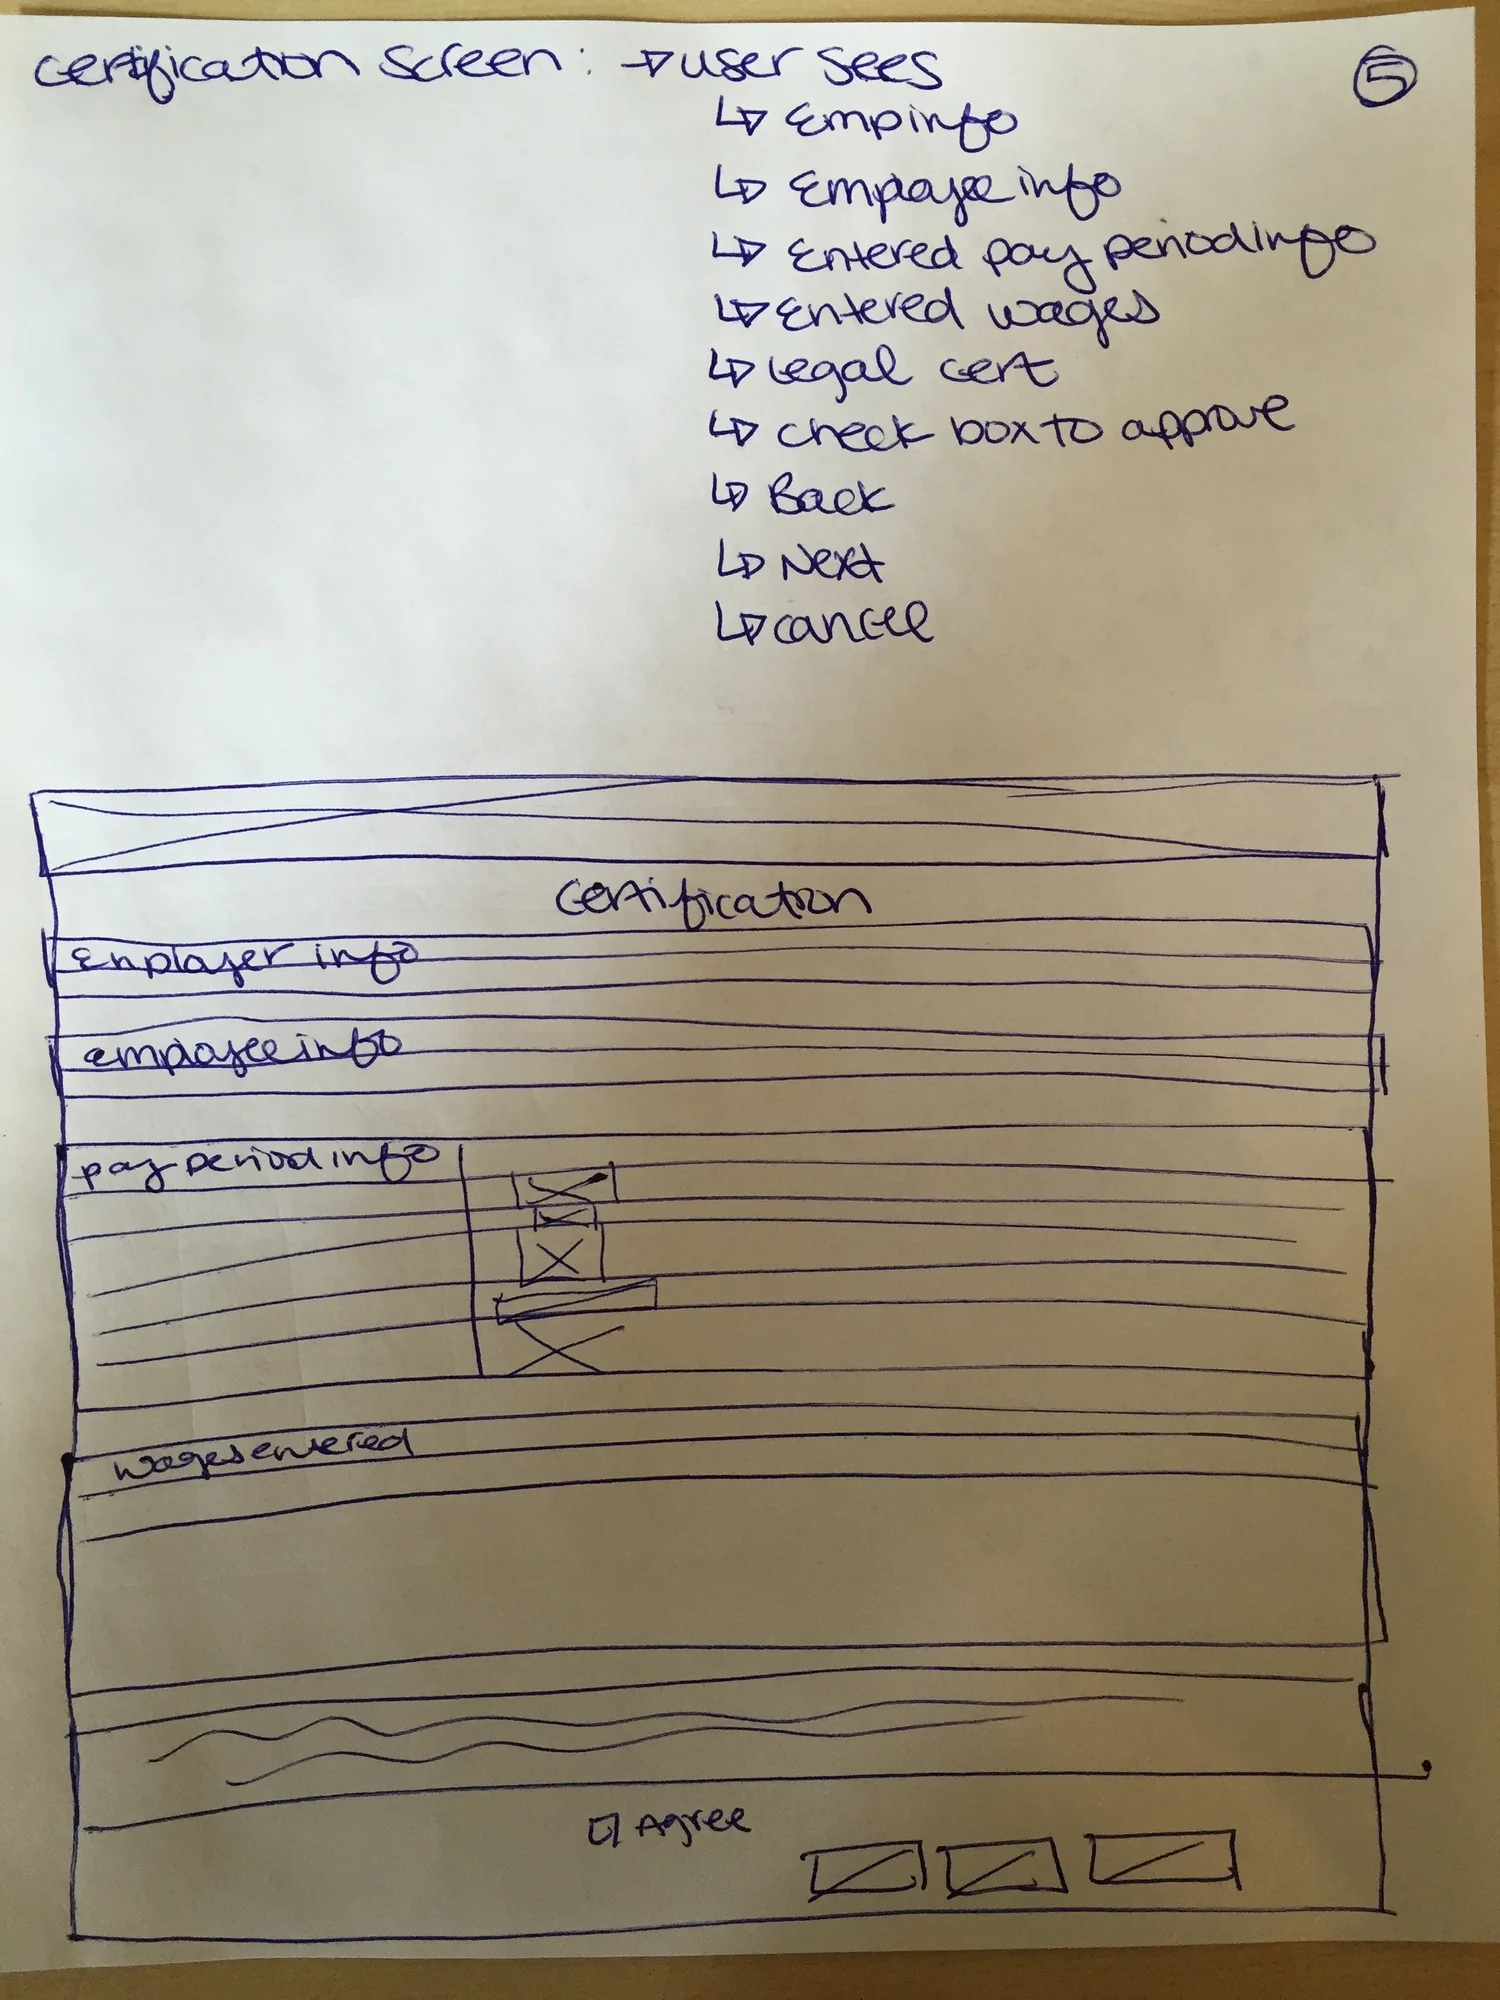 Certification Screen: → user sees
5
↳ Emp info
↳ Employee info
↳ Entered pay period info
↳ Entered wages
↳ Legal cert
↳ check box to approve
↳ Back
↳ Next
↳ cancel
Certification
Employer info
employee info
pay period info
wages entered
Agree